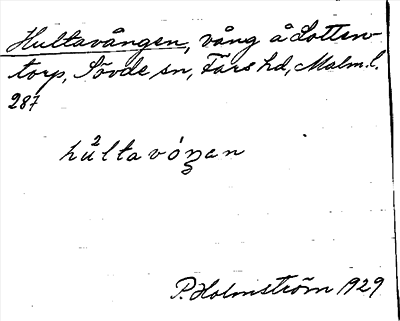 Hultavången, vång å Lotten-
torp, Sövde sn, Färs hd, Malm. l.
287
hu²ltavóŋan
P. Holmström 1929